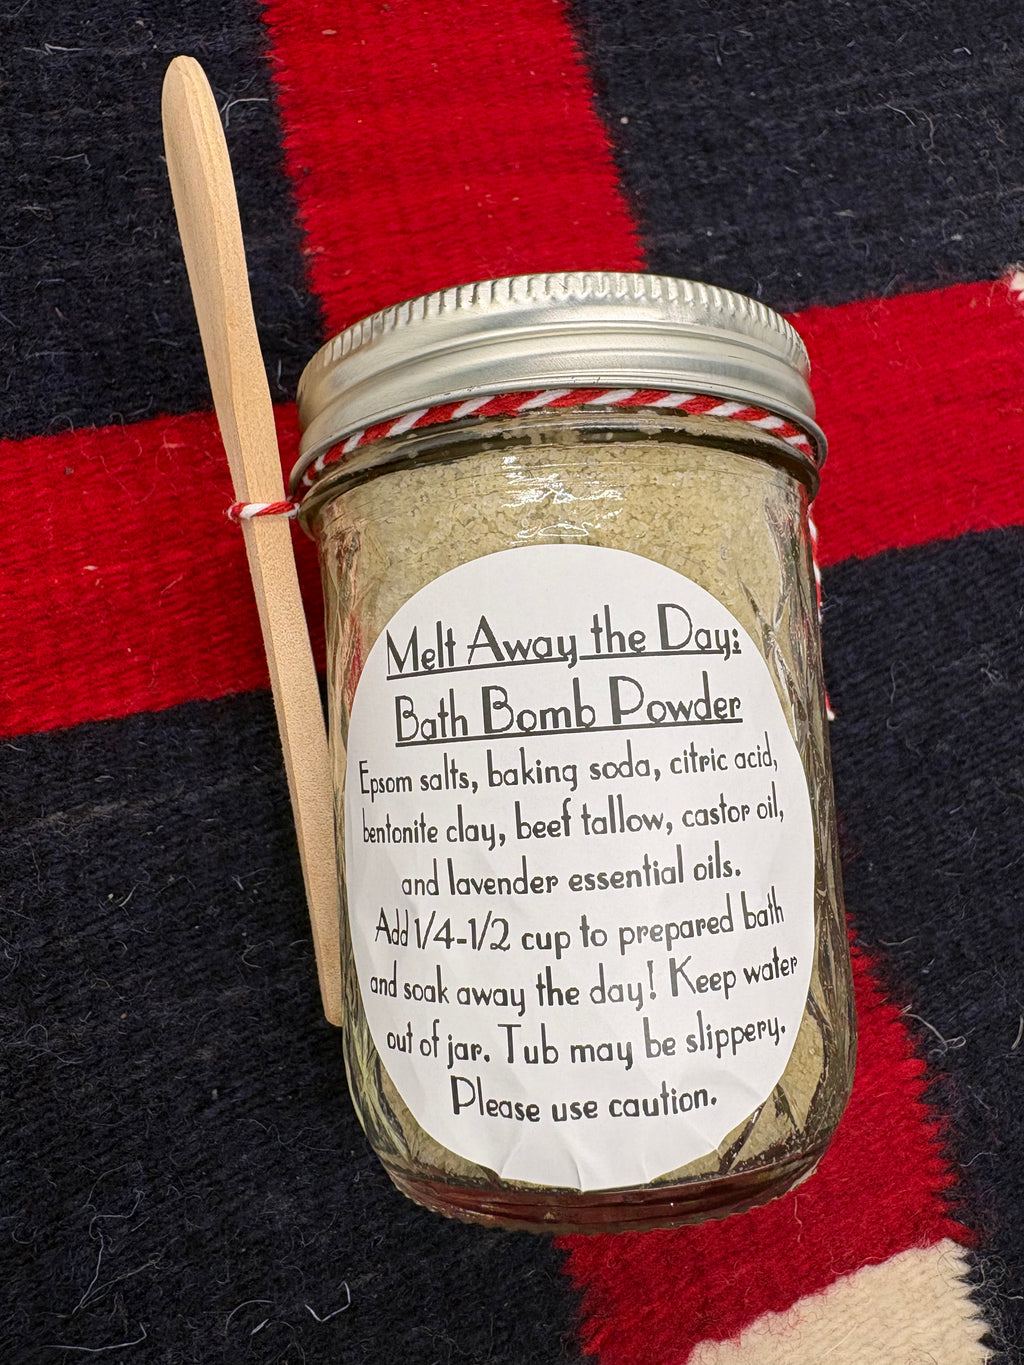 Melt Away the Day:
Bath Bomb Powder
Epsom salts, baking soda, citric acid,
bentonite clay, beef tallow, castor oil,
and lavender essential oils.
Add 1/4-1/2 cup to prepared bath
and soak away the day! Keep water
out of jar. Tub may be slippery.
Please use caution.